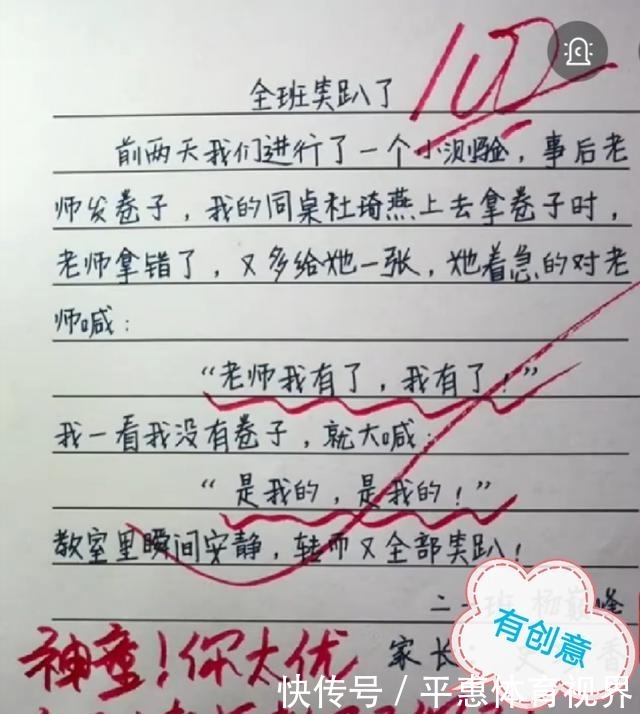 全班笑趴了
100
前两天我们进行了一个小测验，事后老
师发卷子，我的同桌杜琦燕上去拿卷子时，
老师拿错了，又多给她一张，她着急的对老
师喊：
“老师我有了，我有了！”
我一看我没有卷子，就大喊：
“是我的，是我的！”
教室里瞬间安静，转而又全部笑趴！
二 班 杨 峰
家长： 香
有创意
神童！你太优
快传号／平惠体育视界